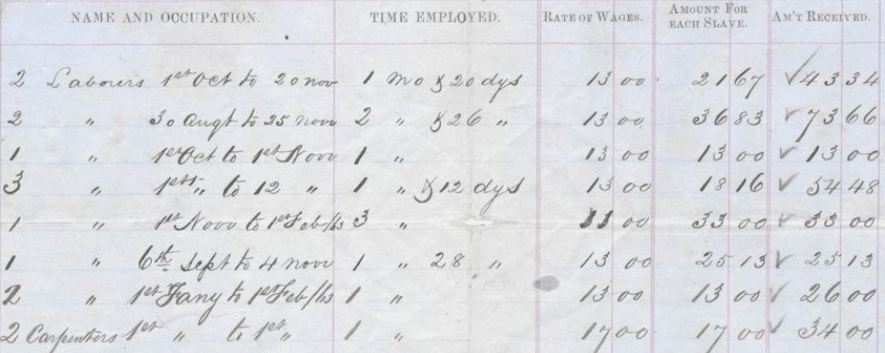 NAME AND OCCUPATION. TIME EMPLOYED. RATE OF WAGES. AMOUNT FOR EACH SLAVE. AM'T RECEIVED.
2 Laborers 1st Oct to 20 nov 1 mo & 20 dys 13 00 21 67 ✓43 34
2 " 30 Augt to 25 novr 2 " & 26 " 13 00 36 83 ✓73 66
1 " 1st Oct to 1st Novr 1 " 13 00 13 00 ✓13 00
3 " 1st " to 12 " 1 " & 12 dys 13 00 18 16 ✓54 48
1 " 1st Novr to 1st Feb/63 3 " 11 00 33 00 ✓33 00
1 " 6th Sept to 4 novr 1 " 28 " 13 00 25 13 ✓25 13
2 " 1st Jany to 1st Feb/63 1 " 13 00 13 00 ✓26 00
2 Carpenters 1st " to 1st " 1 " 17 00 17 00 ✓34 00